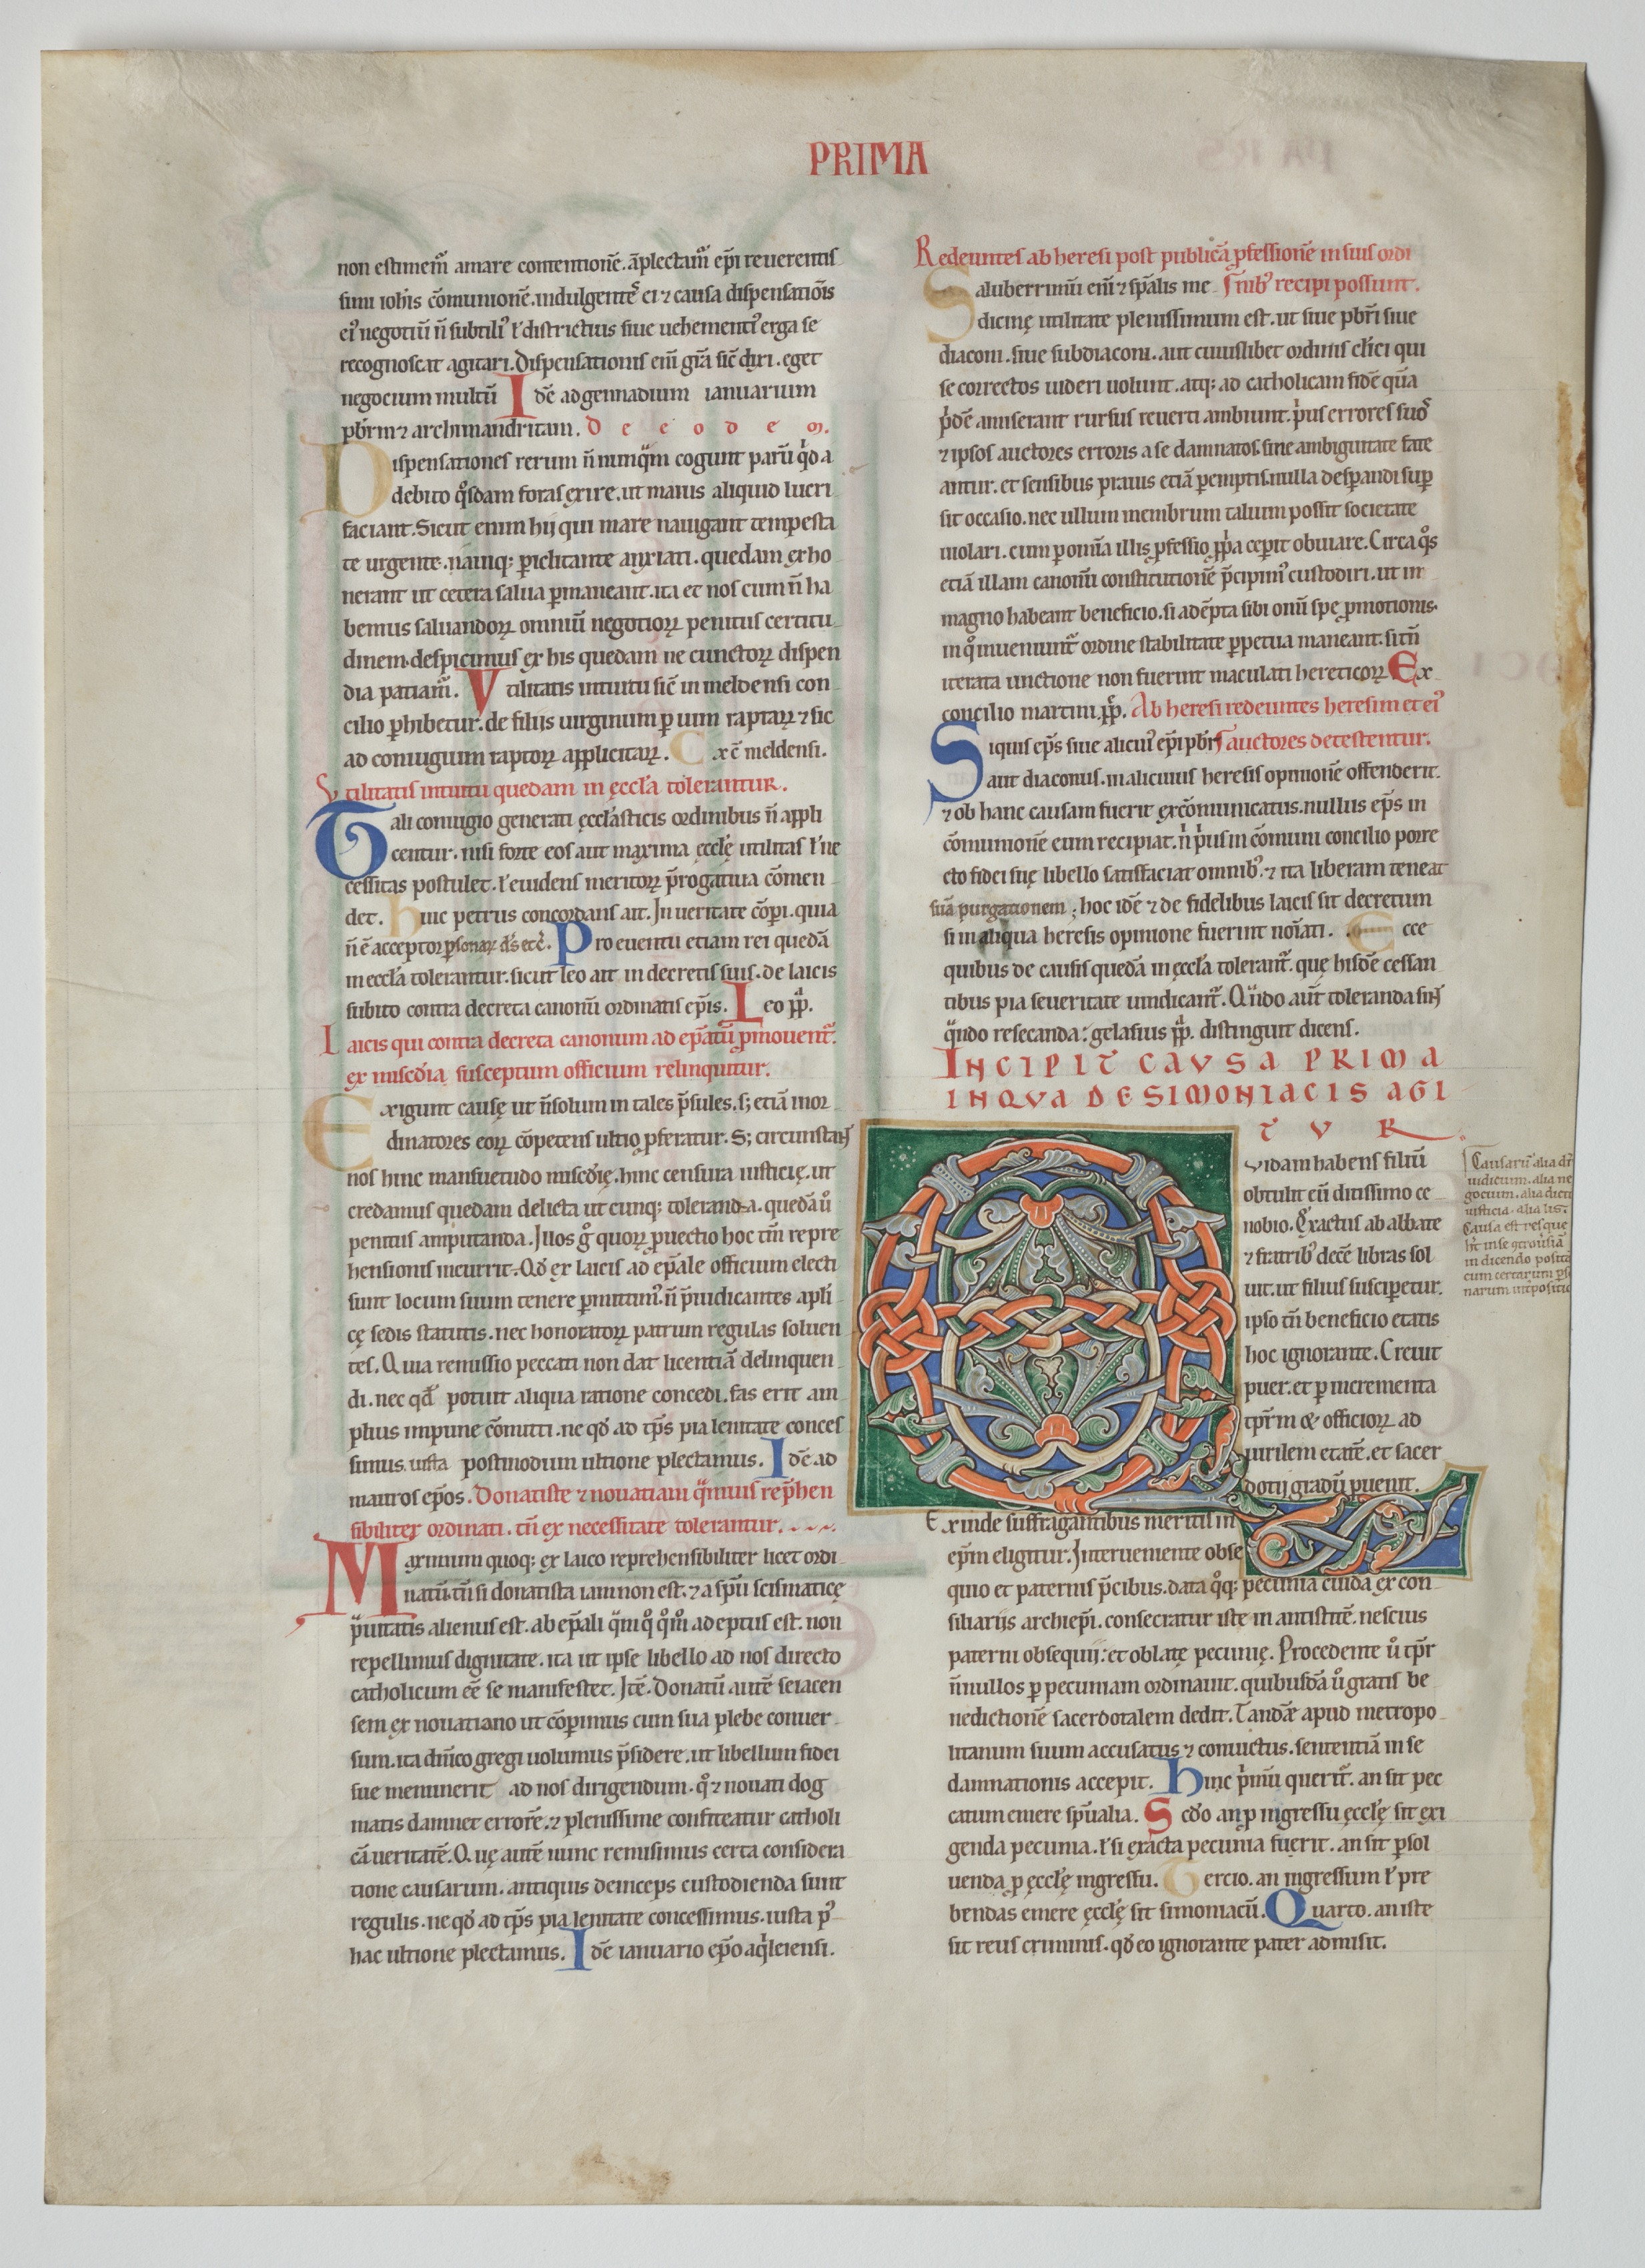 PRIMA
non estimem̃ amare contentionẽ. ãplectam̃ ep̃i reuerentis
simi ioh̃is cõmunionẽ. indulgentẽ ei ⁊ causa dispensatiõis
ei᷒ negotiũ ñ subtili᷒ ł districtius siue uehementi᷒ erga se
recognoscit agitari. Dispensationis eni᷒ gr̃a sic̃ dix̃i. eget
negocium multũ Idẽ ad gennadium ianuarium
pb̃rm ⁊ archimandritam. D e e o d e m.
Dispensationes rerum ñ nunq̃m cogunt parũ q̇d a
debito q̊sdam foras exire. ut maius aliquid lucri
faciant. Sicut enim hij qui mare nauigant tempesta
te urgente. nauiq; ꝑiclitante anxiati. quedam exho
nerant ut cetera salua ꝑmaneant. ita et nos cum ñ ha
bemus saluandoꝝ omniũ negotioꝝ penitus certitu
dinem. despicimus ex his quedam ne cunctoꝝ dispen
dia patiam̃. Vtilitatis intuitu sic̃ in meldensi con
cilio ꝓhibetur. de filiis uirginum ꝑ uim raptaꝝ ⁊ sic
ad coniugium raptoꝝ applicitaꝝ. Ex c̃ meldensi.
Vtilitatis intuitu quedam in ęccl̃a tolerantur.
Tali coniugio generati ęccl̃asticis ordinibus ñ appli
centur. nisi forte eos aut maxima ęccl̃ę utilitas ł ne
cessitas postulet. ł euidens meritoꝝ p̃rogatiua cõmen
det. huic petrus concordans ait. In ueritate cõp̃i. quia
ñ ẽ acceptor ꝑsonaꝝ d̃s etc̃. Pro euentu etiam rei quedã
in eccl̃a tolerantur. sicut leo ait in decretis suis. de laicis
subito contra decreta canonũ ordinatis ep̃is. Leo pp̃.
Laicis qui contra decreta canonum ad ep̃atũ ꝓmouent̃.
ex mis̃cdia susceptum officium relinquitur.
Exigunt causę ut ñ solum in tales p̃sules. s; etiã in or
dinatores eoꝝ cõpetens ultio ꝓferatur. S; circunstant
nos hinc mansuetudo mis̃cdię. hinc censura iusticię. ut
credamus quedam delicta ut cunq; toleranda. quedã u̇o
penitus amputanda. Illos g̊ quoꝝ ꝓuectio hoc tm̃ repre
hensionis incurrit. Qd̃ ex laicis ad ep̃ale officium electi
sunt locum suum tenere ꝑmittim᷒. ñ p̃iudicantes apl̃i
cę sedis statutis. nec honoratoꝝ patrum regulas soluen
tes. Quia remissio peccati non dat licentiã delinquen
di. nec qd̃ potuit aliqua ratione concedi. fas erit am
plius impune cõmitti. ne qd̃ ad tp̃s pia lenitate conces
simus. iusta postmodum ultione plectamus. Idẽ ad
mauros ep̃os. Donatiste ⁊ nouatiani q̃muis rep̃hen
sibiliter ordinati. tñ ex necessitate tolerantur.
Maximum quoq; ex laico reprehensibiliter licet ordi
natũ. tñ si donatista iam non est. ⁊ a sp̃u scismaticę
p̃uitatis alienus est. ab ep̃ali q̃m q̊q̊m̃ adeptus est. non
repellimus dignitate. ita ut ipse libello ad nos directo
catholicum ẽe se manifestet. Itẽ. Donatũ autẽ seiacen
sem ex nouatiano ut cõperimus cum sua plebe conuer
sum. ita dñico gregi uolumus p̃sidere. ut libellum fidei
sue meminerit ad nos dirigendum. q̊ ⁊ nouati dog
matis damnet errorẽ. ⁊ plenissime confiteatur catholi
cã ueritatẽ. Quę autẽ nunc remisimus certa considera
tione causarum. antiquis deinceps custodienda sunt
regulis. ne qd̃ ad tp̃s pia lenitate concessimus. iusta p᷒
hac ultione plectamus. Idẽ ianuario ep̃o aq̇leiensi.
Redeuntes ab heresi post publicã ꝓfessionẽ in suis ordi
Saluberrimũ eni᷒ ⁊ sp̃alis me nib᷒ recipi possunt.
dicinę utilitate plenissimum est. ut siue pb̃ri siue
diaconi. siue subdiaconi. aut cuiuslibet ordinis cl̃ici qui
se correctos uideri uolunt. atq; ad catholicam fidẽ quã
ṗdẽ amiserant rursus reuerti ambiunt. ṗus errores suos
⁊ ipsos auctores erroris a se damnatos. sine ambiguitate fate
antur. et sensibus prauis etiã ꝑemptis. nulla desꝑandi suꝑ
sit occasio. nec ullum membrum talium possit societate
uiolari. cum ꝑ omĩa illis ꝓfessio pp̃a ceperit obuiare. Circa q̊s
etiã illam canonũ constitutionẽ p̃cipim᷒ custodiri. ut in
magno habeant beneficio. si adẽpta sibi omi᷒ spe ꝓmotionis.
in q̊ inueniunt̃ ordine stabilitate ꝑpetua maneant. si tñ
iterata unctione non fuerint maculati hereticoꝝ Ex
concilio martini. pp̃. Ab heresi redeuntes heresim et ei᷒
Siquis ep̃s siue alicui᷒ ep̃i pb̃r auctores detestentur.
aut diaconus. in alicuius heresis opinionẽ offenderit.
⁊ ob hanc causam fuerit excõmunicatus. nullus ep̃s in
cõmunionẽ eum recipiat. ñ ṗus in cõmuni concilio porre
cto fidei suę libello satisfaciat omnib᷒. ⁊ ita liberam teneat
suã purgationem; hoc idẽ ⁊ de fidelibus laicis sit decretum
si in aliqua heresis opinione fuerint nõiati. Ecce
quibus de causis quedã in ęccl̃a tolerant̃. que hisdẽ cessan
tibus pia seueritate uindicant̃. Qñdo aut̃ toleranda sint
q̃ndo resecanda: gelasius pp̃. distinguit dicens.
INCIPIT CAVSA PRIMA
IN QVA DE SIMONIACIS AGI
T V R
Quidam habens filiũ
obtulit eũ ditissimo ce
nobio. Exactus ab abbate
⁊ fratrib᷒ decẽ libras sol
uit. ut filius susciperetur.
ipso tñ beneficio etatis
hoc ignorante. Creuit
puer. et ꝑ incrementa
tp̃r̃m & officioꝝ ad
uirilem etatẽ. et sacer
dotij gradũ ꝑuenit.
Exinde suffragantibus meritis in
ep̃m eligitur. Interueniente obse
quio et paternis p̃cibus. data q̊q; pecunia cuidã ex con
siliarijs archiep̃i. consecratur iste in antistitẽ. nescius
paterni obsequij: et oblatę pecunię. Procedente u̇o tp̃r
ñnullos ꝑ pecuniam ordinauit. quibusdã u̇o gratis be
nedictionẽ sacerdotalem dedit. Tandẽ apud metropo
litanum suum accusatus ⁊ conuictus. sententiã in se
damnationis accepit. Hinc ṗmũ querit̃. an sit pec
catum emere sp̃ualia. Scd̃o an ꝓ ingressu ęccl̃ę sit exi
genda pecunia. ł si exacta pecunia fuerit. an sit ꝑsol
uenda ꝓ ęccl̃ę ingressu. Tercio. an ingressum ł pre
bendas emere ęccl̃ę sit simoniacũ. Quarto. an iste
sit reus criminis. qd̃ eo ignorante pater admisit.
Causarũ alia dr̃
iudicium. alia ne
gocium. alia dicit
iusticia. alia lis.
Causa est res que
h̃t in se ꝯtrouersiã
in dicendo positã
cum certarum ꝑso
narum interpositio